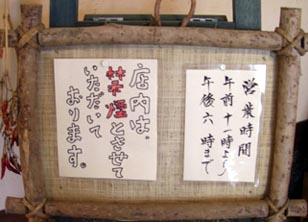 営業時間
午前十一時より
午後六時まで
店内は、
禁煙とさせて
いただいて
おります。